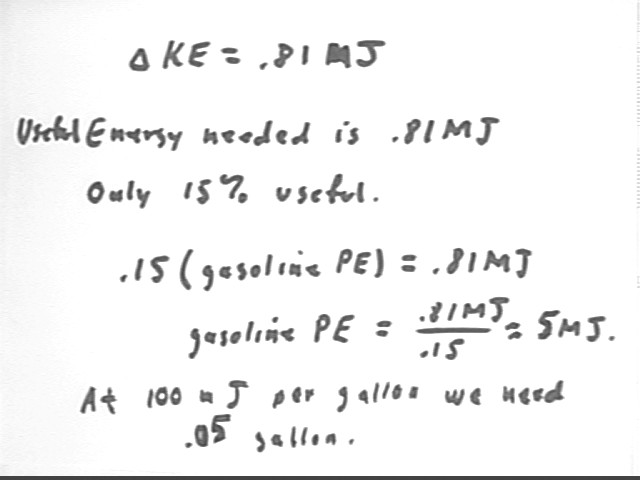 Δ KE = .81 MJ
Useful Energy needed is .81 MJ
Only 15% useful.
.15 (gasoline PE) = .81 MJ
gasoline PE = .81 MJ / .15 ≈ 5 MJ.
At 100 MJ per gallon we need
.05 gallon.